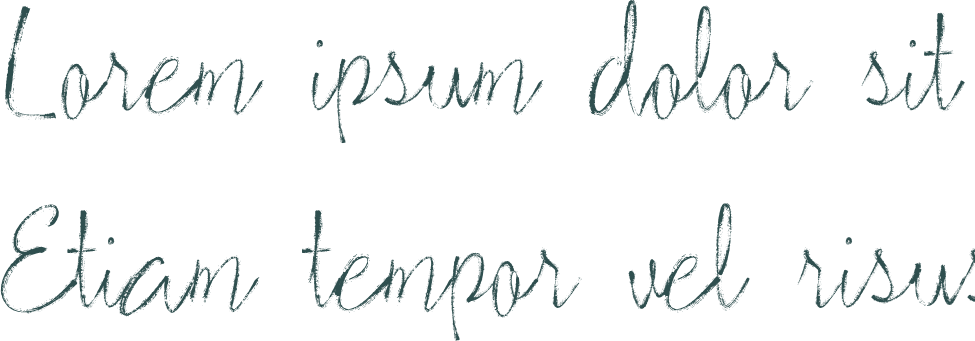 Lorem ipsum dolor sit
Etiam tempor vel risus